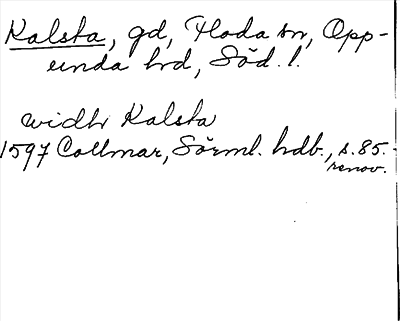 Kalsta, gd, Floda sn, Opp-
unda hd, Söd. l.
widh Kalsta
1597 Collmar, Sörml. hdb., s. 85.
renov.